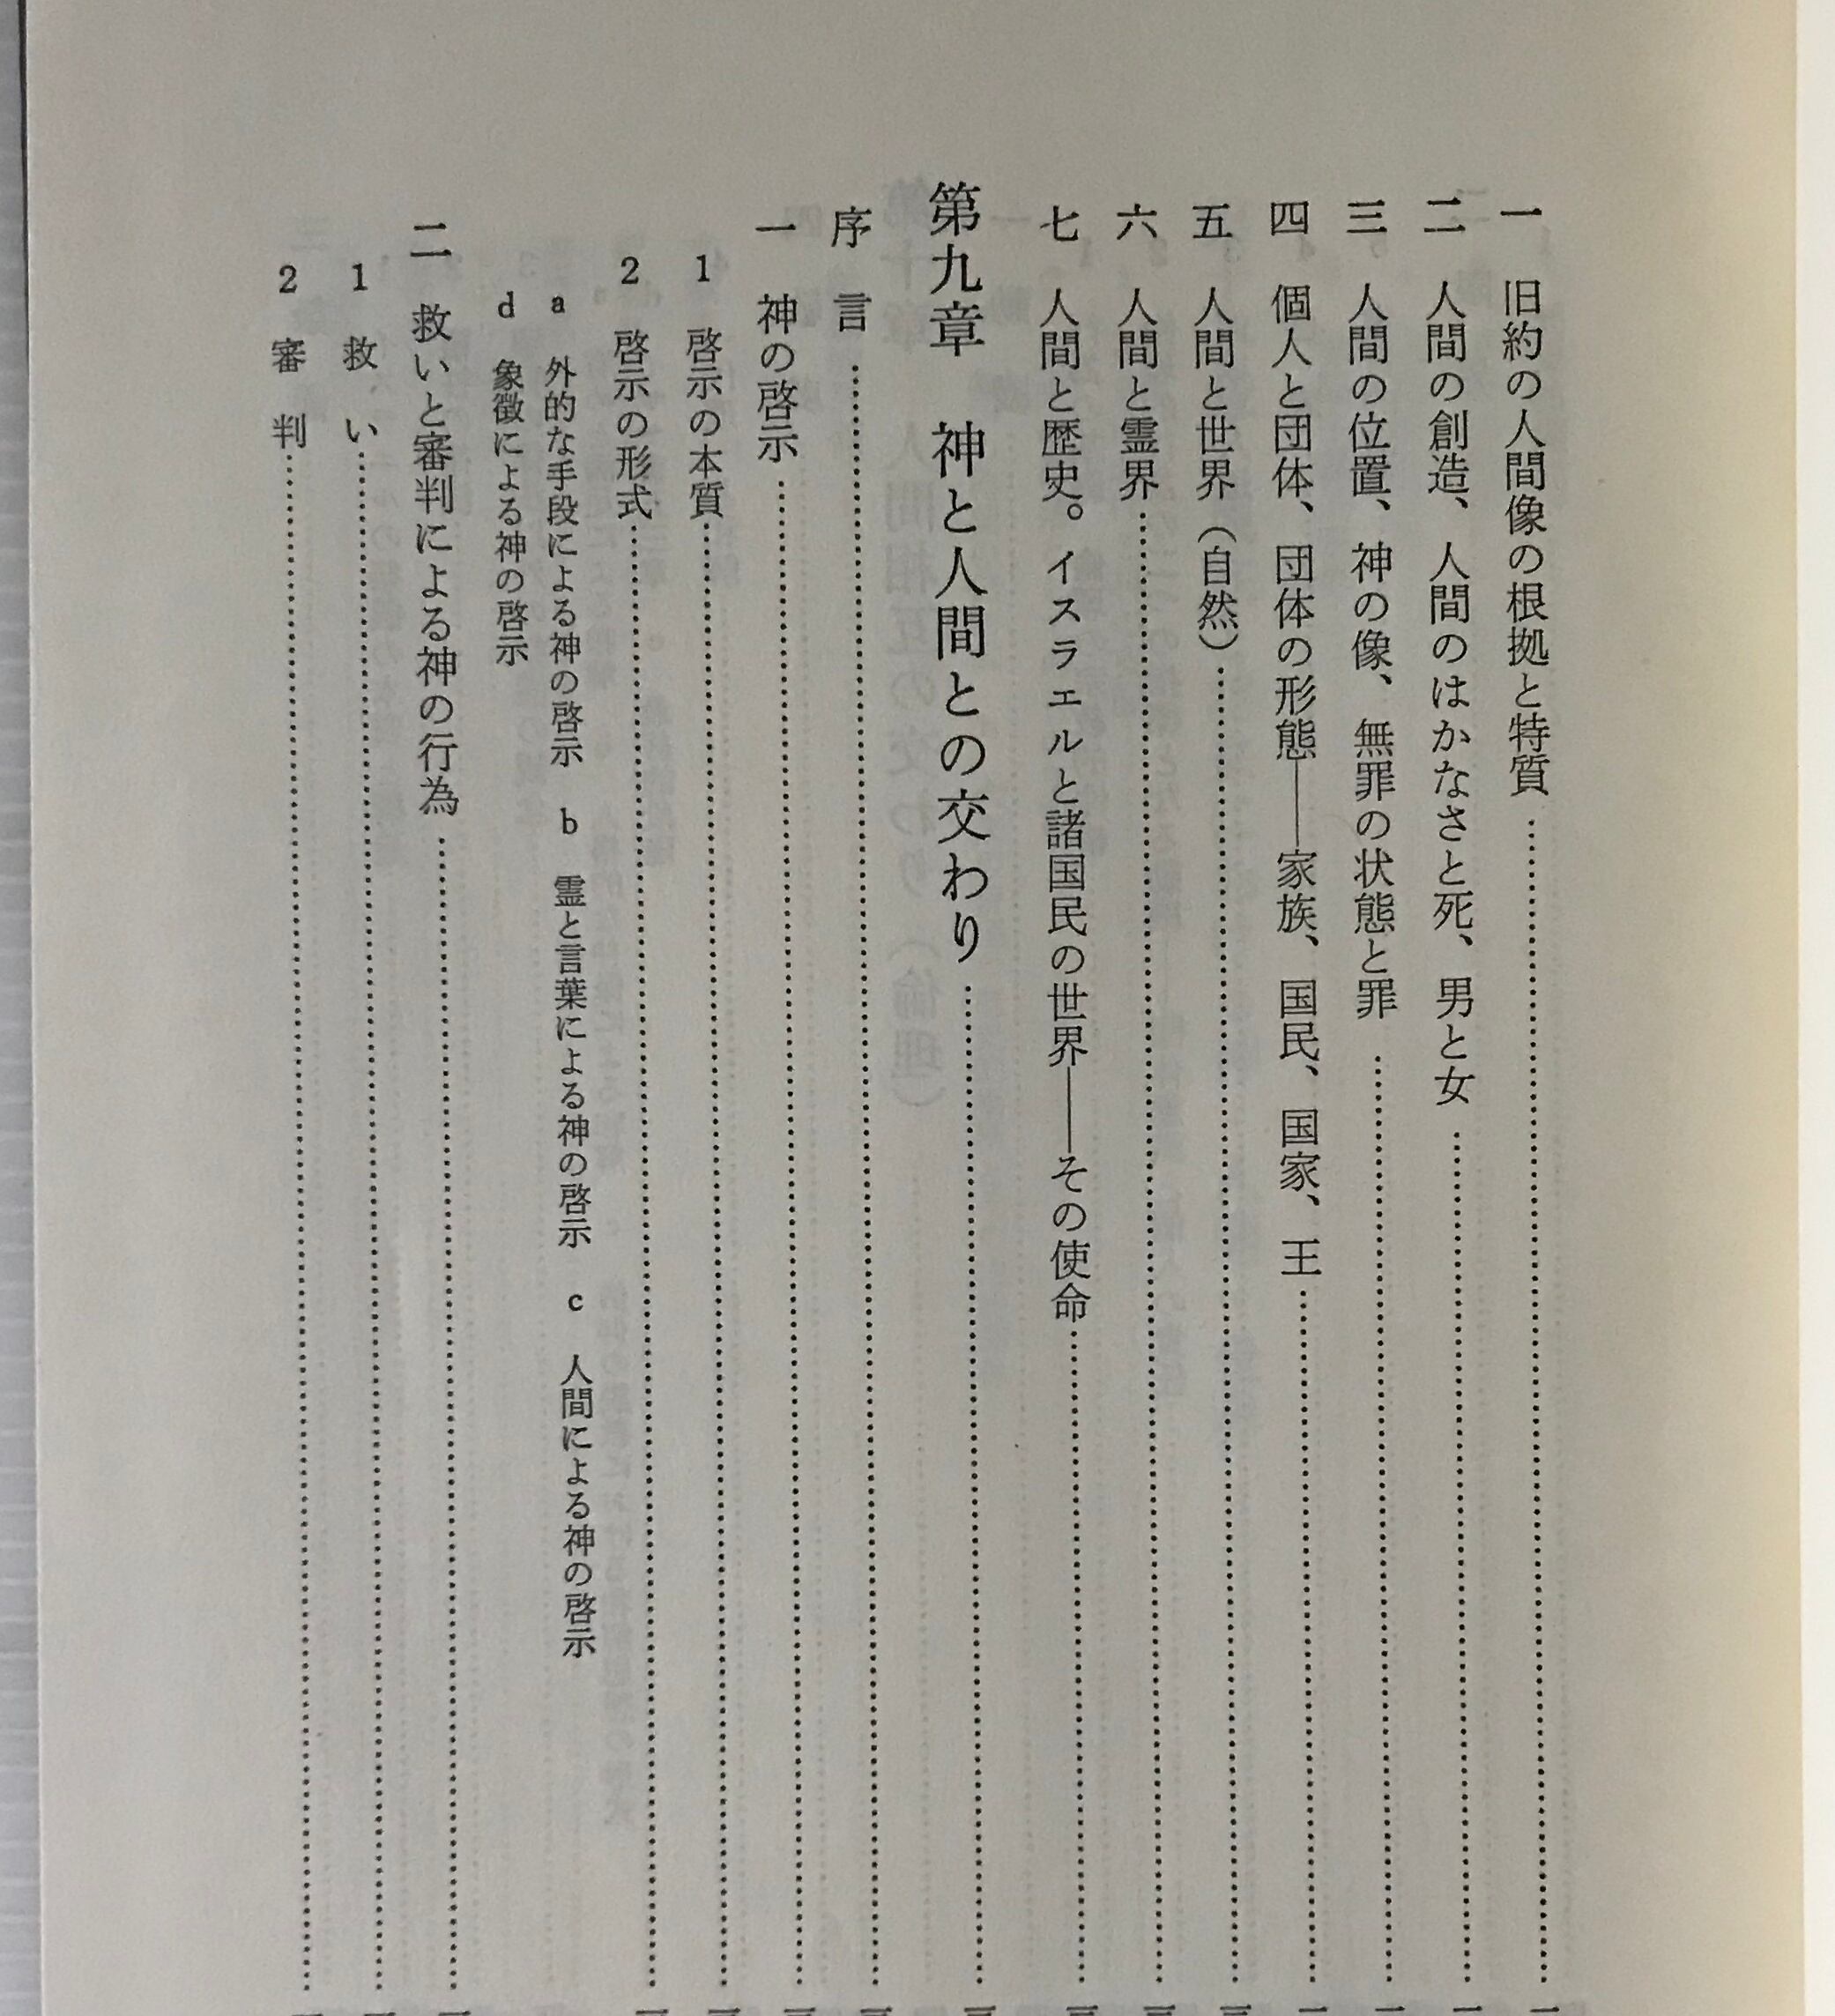 一 旧約の人間像の根拠と特質……
二 人間の創造、人間のはかなさと死、男と女……
三 人間の位置、神の像、無罪の状態と罪……
四 個人と団体、団体の形態――家族、国民、国家、王……
五 人間と世界（自然）……
六 人間と霊界……
七 人間と歴史。イスラエルと諸国民の世界――その使命……
第九章 神と人間との交わり……
序言……
一 神の啓示……
1 啓示の本質……
2 啓示の形式……
a 外的な手段による神の啓示 b 霊と言葉による神の啓示 c 人間による神の啓示
d 象徴による神の啓示
二 救いと審判による神の行為……
1 救い……
2 審判……